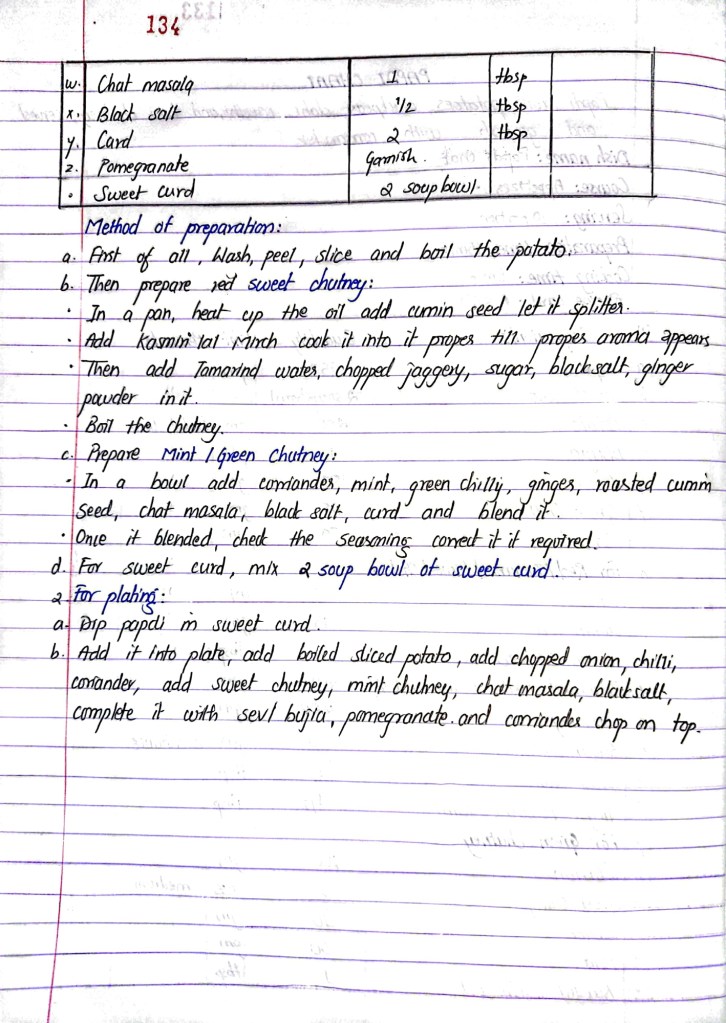 134
w. Chat masala 1 tbsp
x. Black salt 1/2 tbsp
y. Card 2 tbsp
z. Pomegranate Garnish.
• Sweet curd 2 soup bowl.
Method of preparation:
a. First of all, Wash, peel, slice and boil the potato.
b. Then prepare red sweet chutney:
• In a pan, heat up the oil add cumin seed let it splitter.
• Add Kasmiri lal Mirch cook it into it proper till proper aroma appears
• Then add Tamarind water, chopped jaggery, sugar, black salt, ginger
powder in it.
• Boil the chutney.
c. Prepare Mint / Green Chutney:
• In a bowl add corriander, mint, green chilly, ginger, roasted cumin
seed, chat masala, black salt, curd and blend it.
• Once it blended, check the seasoning correct it if required.
d. For sweet curd, mix 2 soup bowl of sweet curd.
2. For plating:
a. Dip papdi in sweet curd.
b. Add it into plate, add boiled sliced potato, add chopped onion, chilli,
corriander, add sweet chutney, mint chutney, chat masala, black salt,
complete it with sev/ bujia, pomegranate. and corriander chop on top.